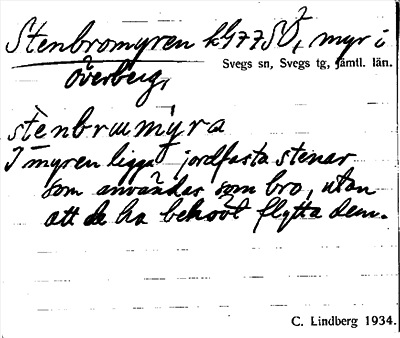 Stenbromyren kG77SÖ, myr i
Svegs sn, Svegs tg, Jämtl. län.
Överberg,
stenbrumýra
I myren ligga jordfasta stenar
som användas som bro, utan
att de ha behövt flytta dem.
C. Lindberg 1934.